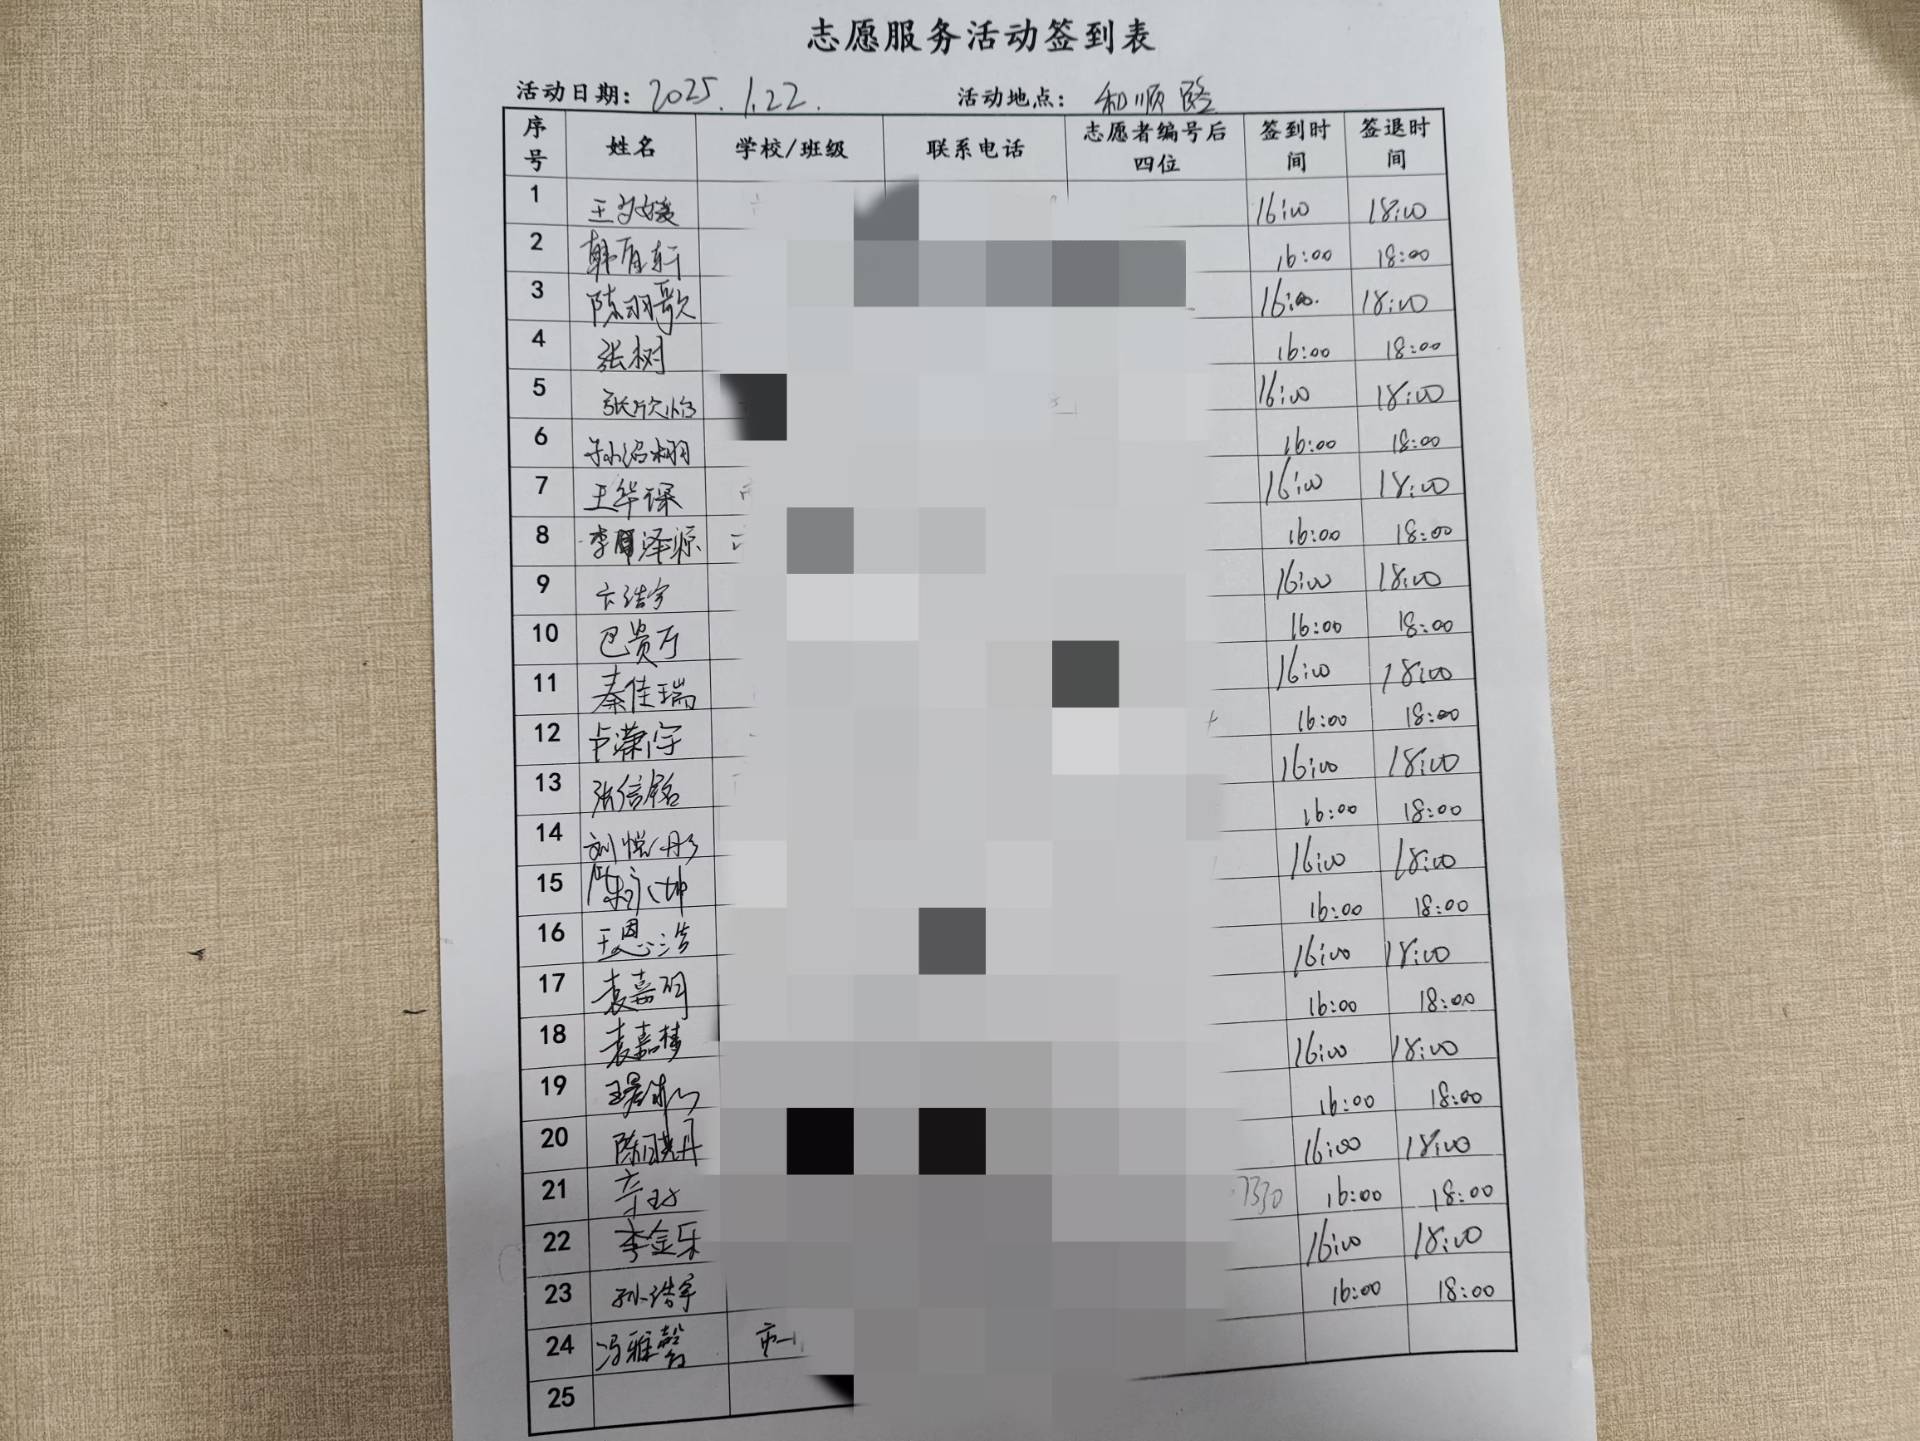 志愿服务活动签到表
活动日期: 2025.1.22. 活动地点: 和顺路
序号 姓名 学校/班级 联系电话 志愿者编号后四位 签到时间 签退时间
1 16:00 18:00
2 16:00 18:00
3 陈羽歌 16:00. 18:00
4 张树 16:00 18:00
5 16:00 18:00
6 16:00 18:00
7 王华琛 16:00 18:00
8 李 泽源 16:00 18:00
9 卞浩宇 16:00 18:00
10 巴贵万 16:00 18:00
11 秦佳瑞 16:00 18:00
12 卢潇宇 16:00 18:00
13 张信铭 16:00 18:00
14 刘悦彤 16:00 18:00
15 陈永坤 16:00 18:00
16 王恩浩 16:00 18:00
17 袁嘉明 16:00 18:00
18 袁嘉梦 16:00 18:00
19 16:00 18:00
20 陈晓丹 16:00 18:00
21 7330 16:00 18:00
22 李金乐 16:00 18:00
23 孙浩宇 16:00 18:00
24 冯雅馨 市一
25